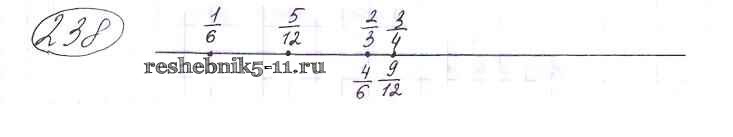 238
1/6 5/12 2/3 3/4
reshebnik5-11.ru
4/6 9/12